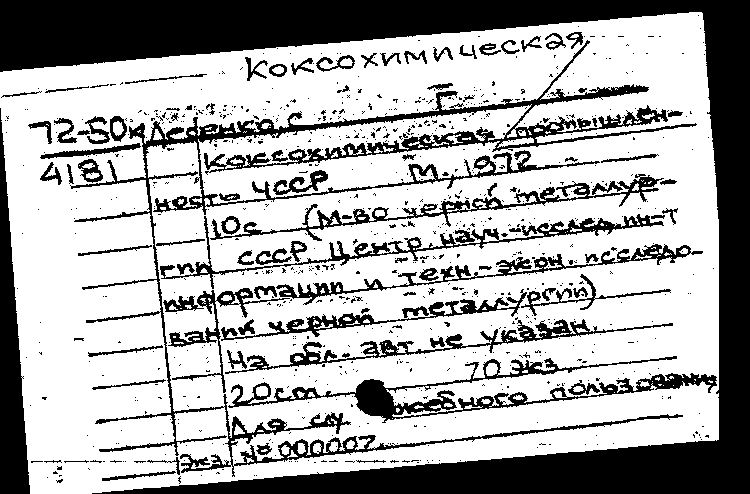 Коксохимическая
72-50к Леденко, С Г
4181 Коксохимическая промышлен-
ность ЧССР. М., 1972
10с. (М-во черной металлур-
гии СССР. Центр. науч.-исслед. ин-т
информации и техн.-экон. исследо-
ваний черной металлургии).
На обл. авт. не указан.
20см. 70 экз.
Для служебного пользования
Экз. № 000007.